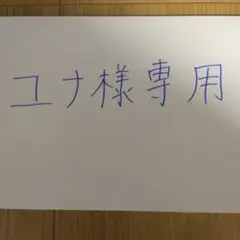 ユナ様専用